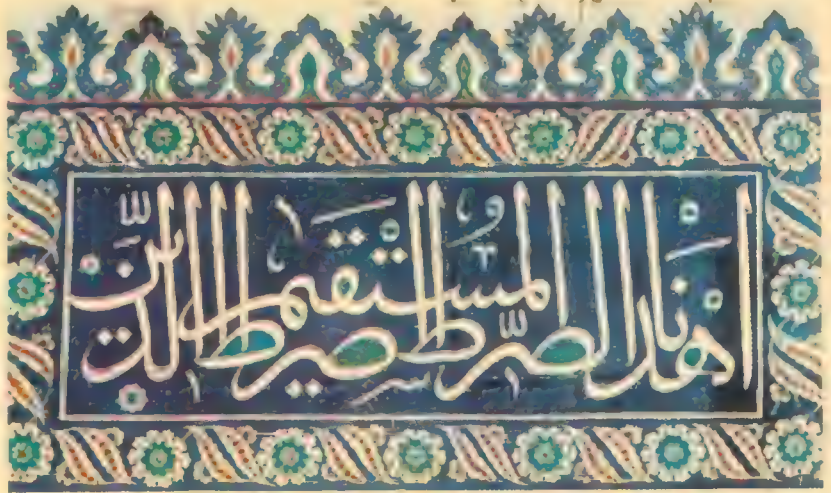 اهدنا الصرط المستقيم صرط الذين